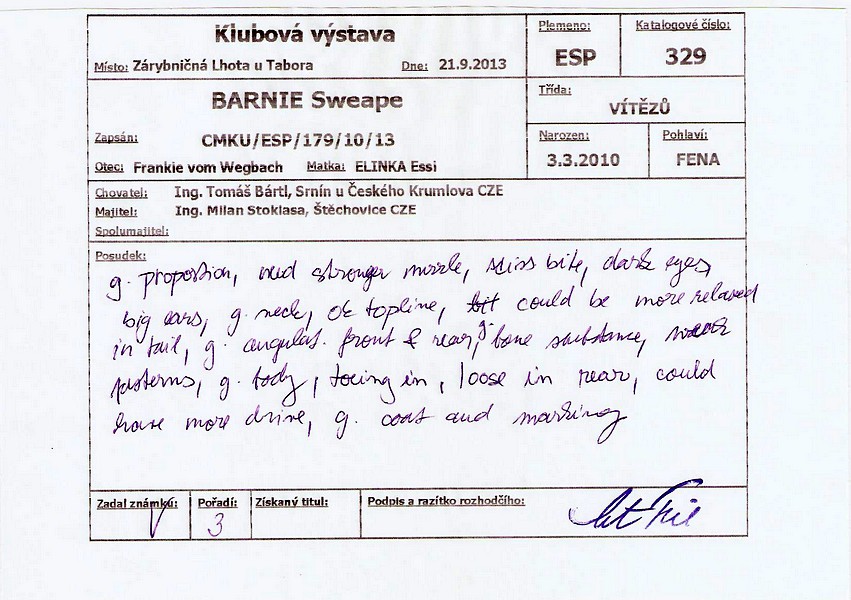 Klubová výstava
Místo: Zárybničná Lhota u Tabora Dne: 21.9.2013
Plemeno:
ESP
Katalogové číslo:
329
BARNIE Sweape
Zapsán: CMKU/ESP/179/10/13
Otec: Frankie vom Wegbach Matka: ELINKA Essi
Třída:
VÍTĚZŮ
Narozen:
3.3.2010
Pohlaví:
FENA
Chovatel: Ing. Tomáš Bártl, Srnín u Českého Krumlova CZE
Majitel: Ing. Milan Stoklasa, Štěchovice CZE
Spolumajitel:
Posudek:
g. proportion, need stronger muzzle, sciss bite, dark eyes,
big ears, g. neck, ok topline, could be more relaxed
in tail, g. angulat. front & rear, g. bone substance,
pasterns, g. body, toeing in, loose in rear, could
have more drive, g. coat and marking
Zadal známku:
V
Pořadí:
3
Získaný titul:
Podpis a razítko rozhodčího: